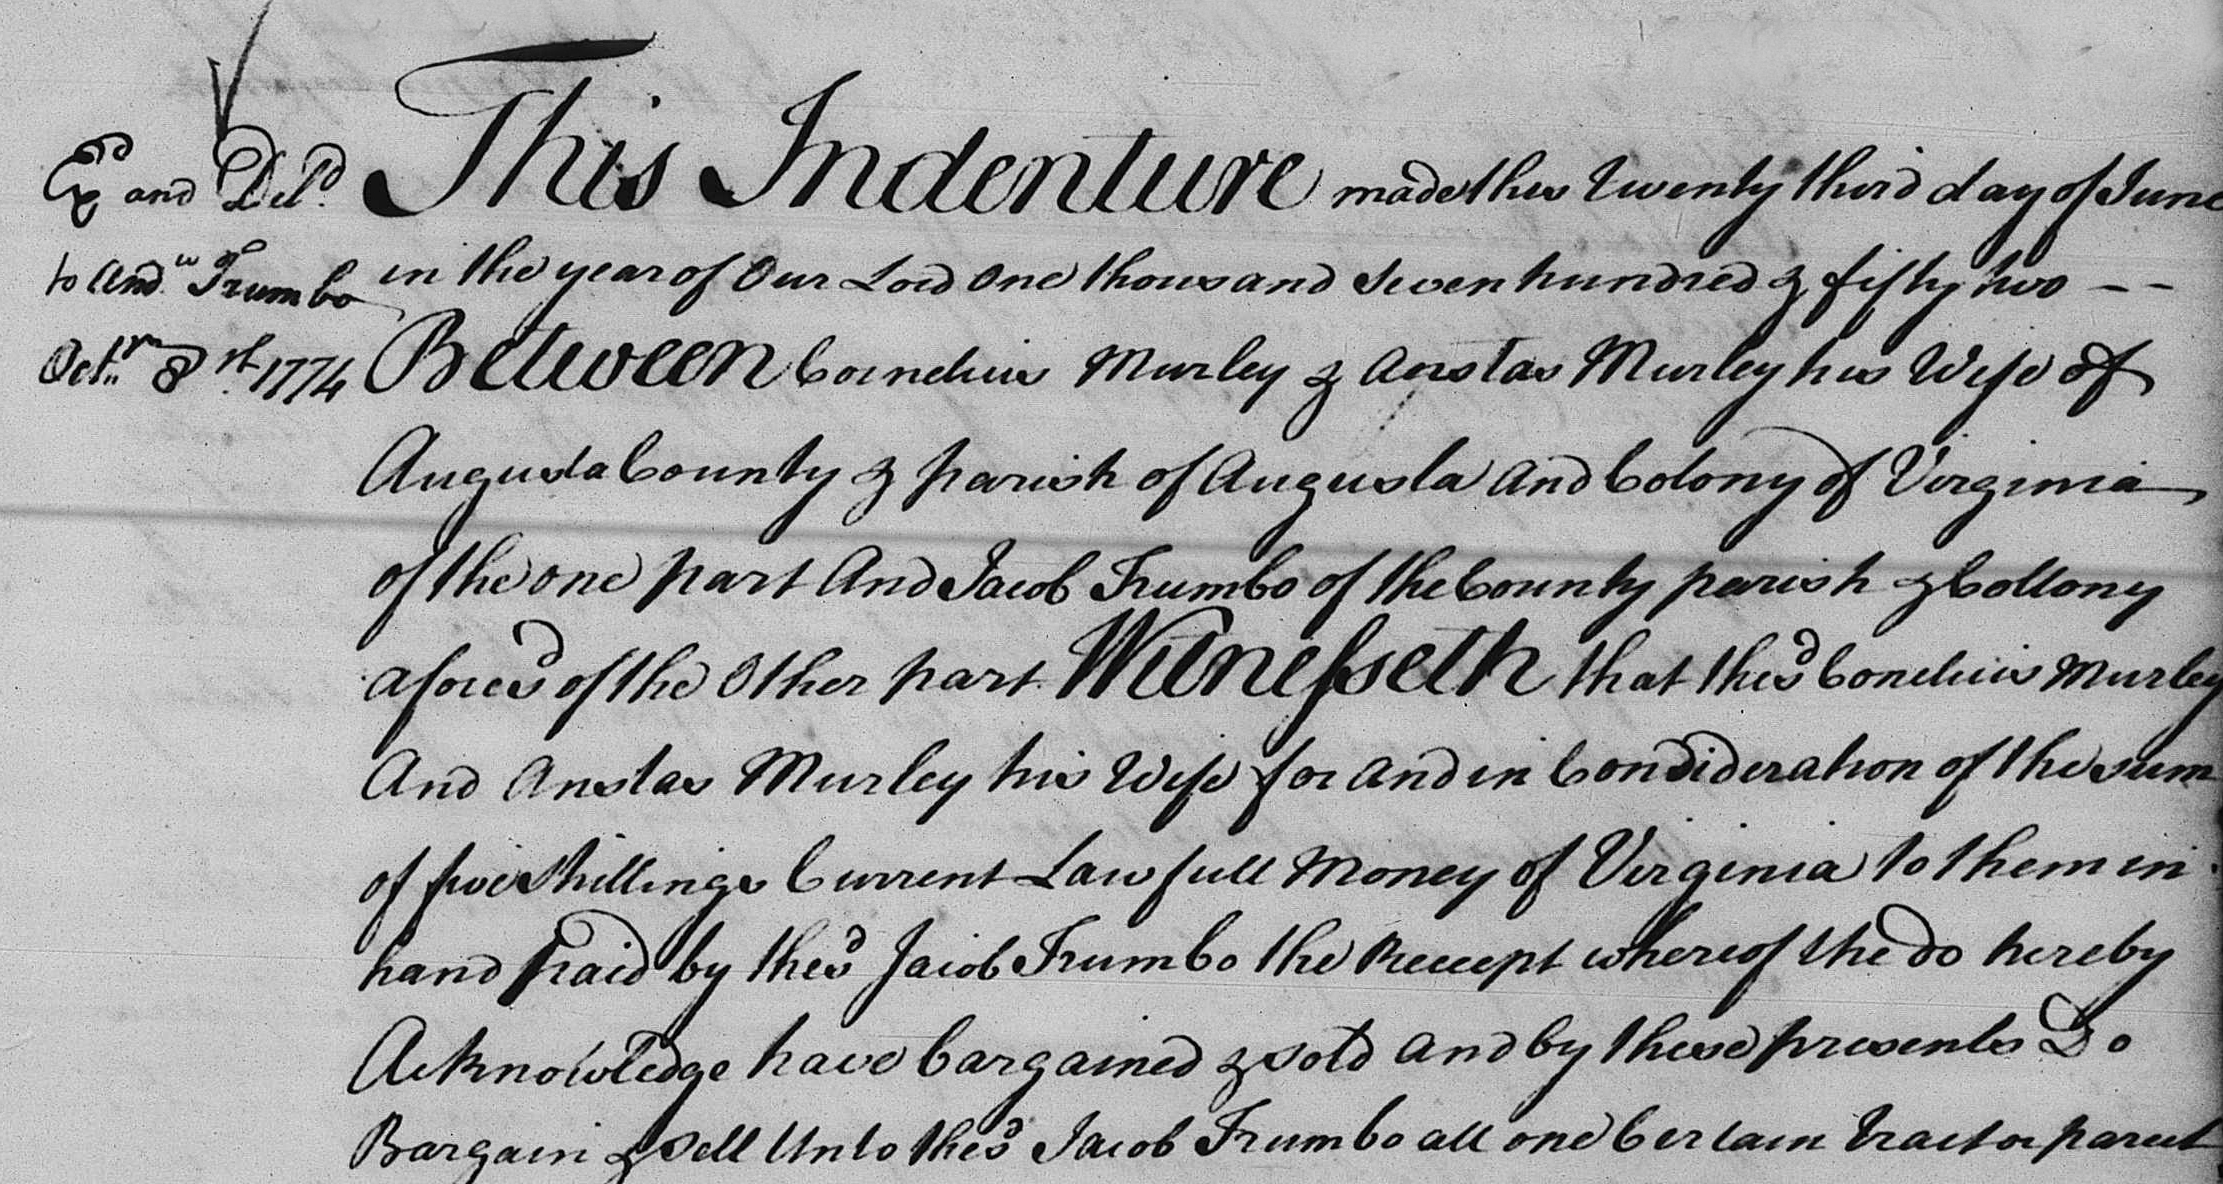 Exd and Deld.
to Andw. Trumbo
Octr. 8th. 1774
This Indenture made this Twenty third day of June
in the year of Our Lord One thousand Seven hundred & fifty two --
Between Cornelius Murley & Anstas Murley his Wife of
Augusta County & parish of Augusta And Colony of Virginia
of the one part And Jacob Trumbo of the County parish & Collony
aforesd of the Other part Witnesseth that the sd Cornelius Murley
And Anstas Murley his Wife for and in Consideration of the sum
of five Shillings Current Lawfull Money of Virginia to them in
hand paid by the sd Jacob Trumbo the Receipt whereof the do hereby
Acknowledge have bargained & sold and by these presents Do
Bargain & Sell Unto the sd Jacob Trumbo all one Certain Tract or parcel